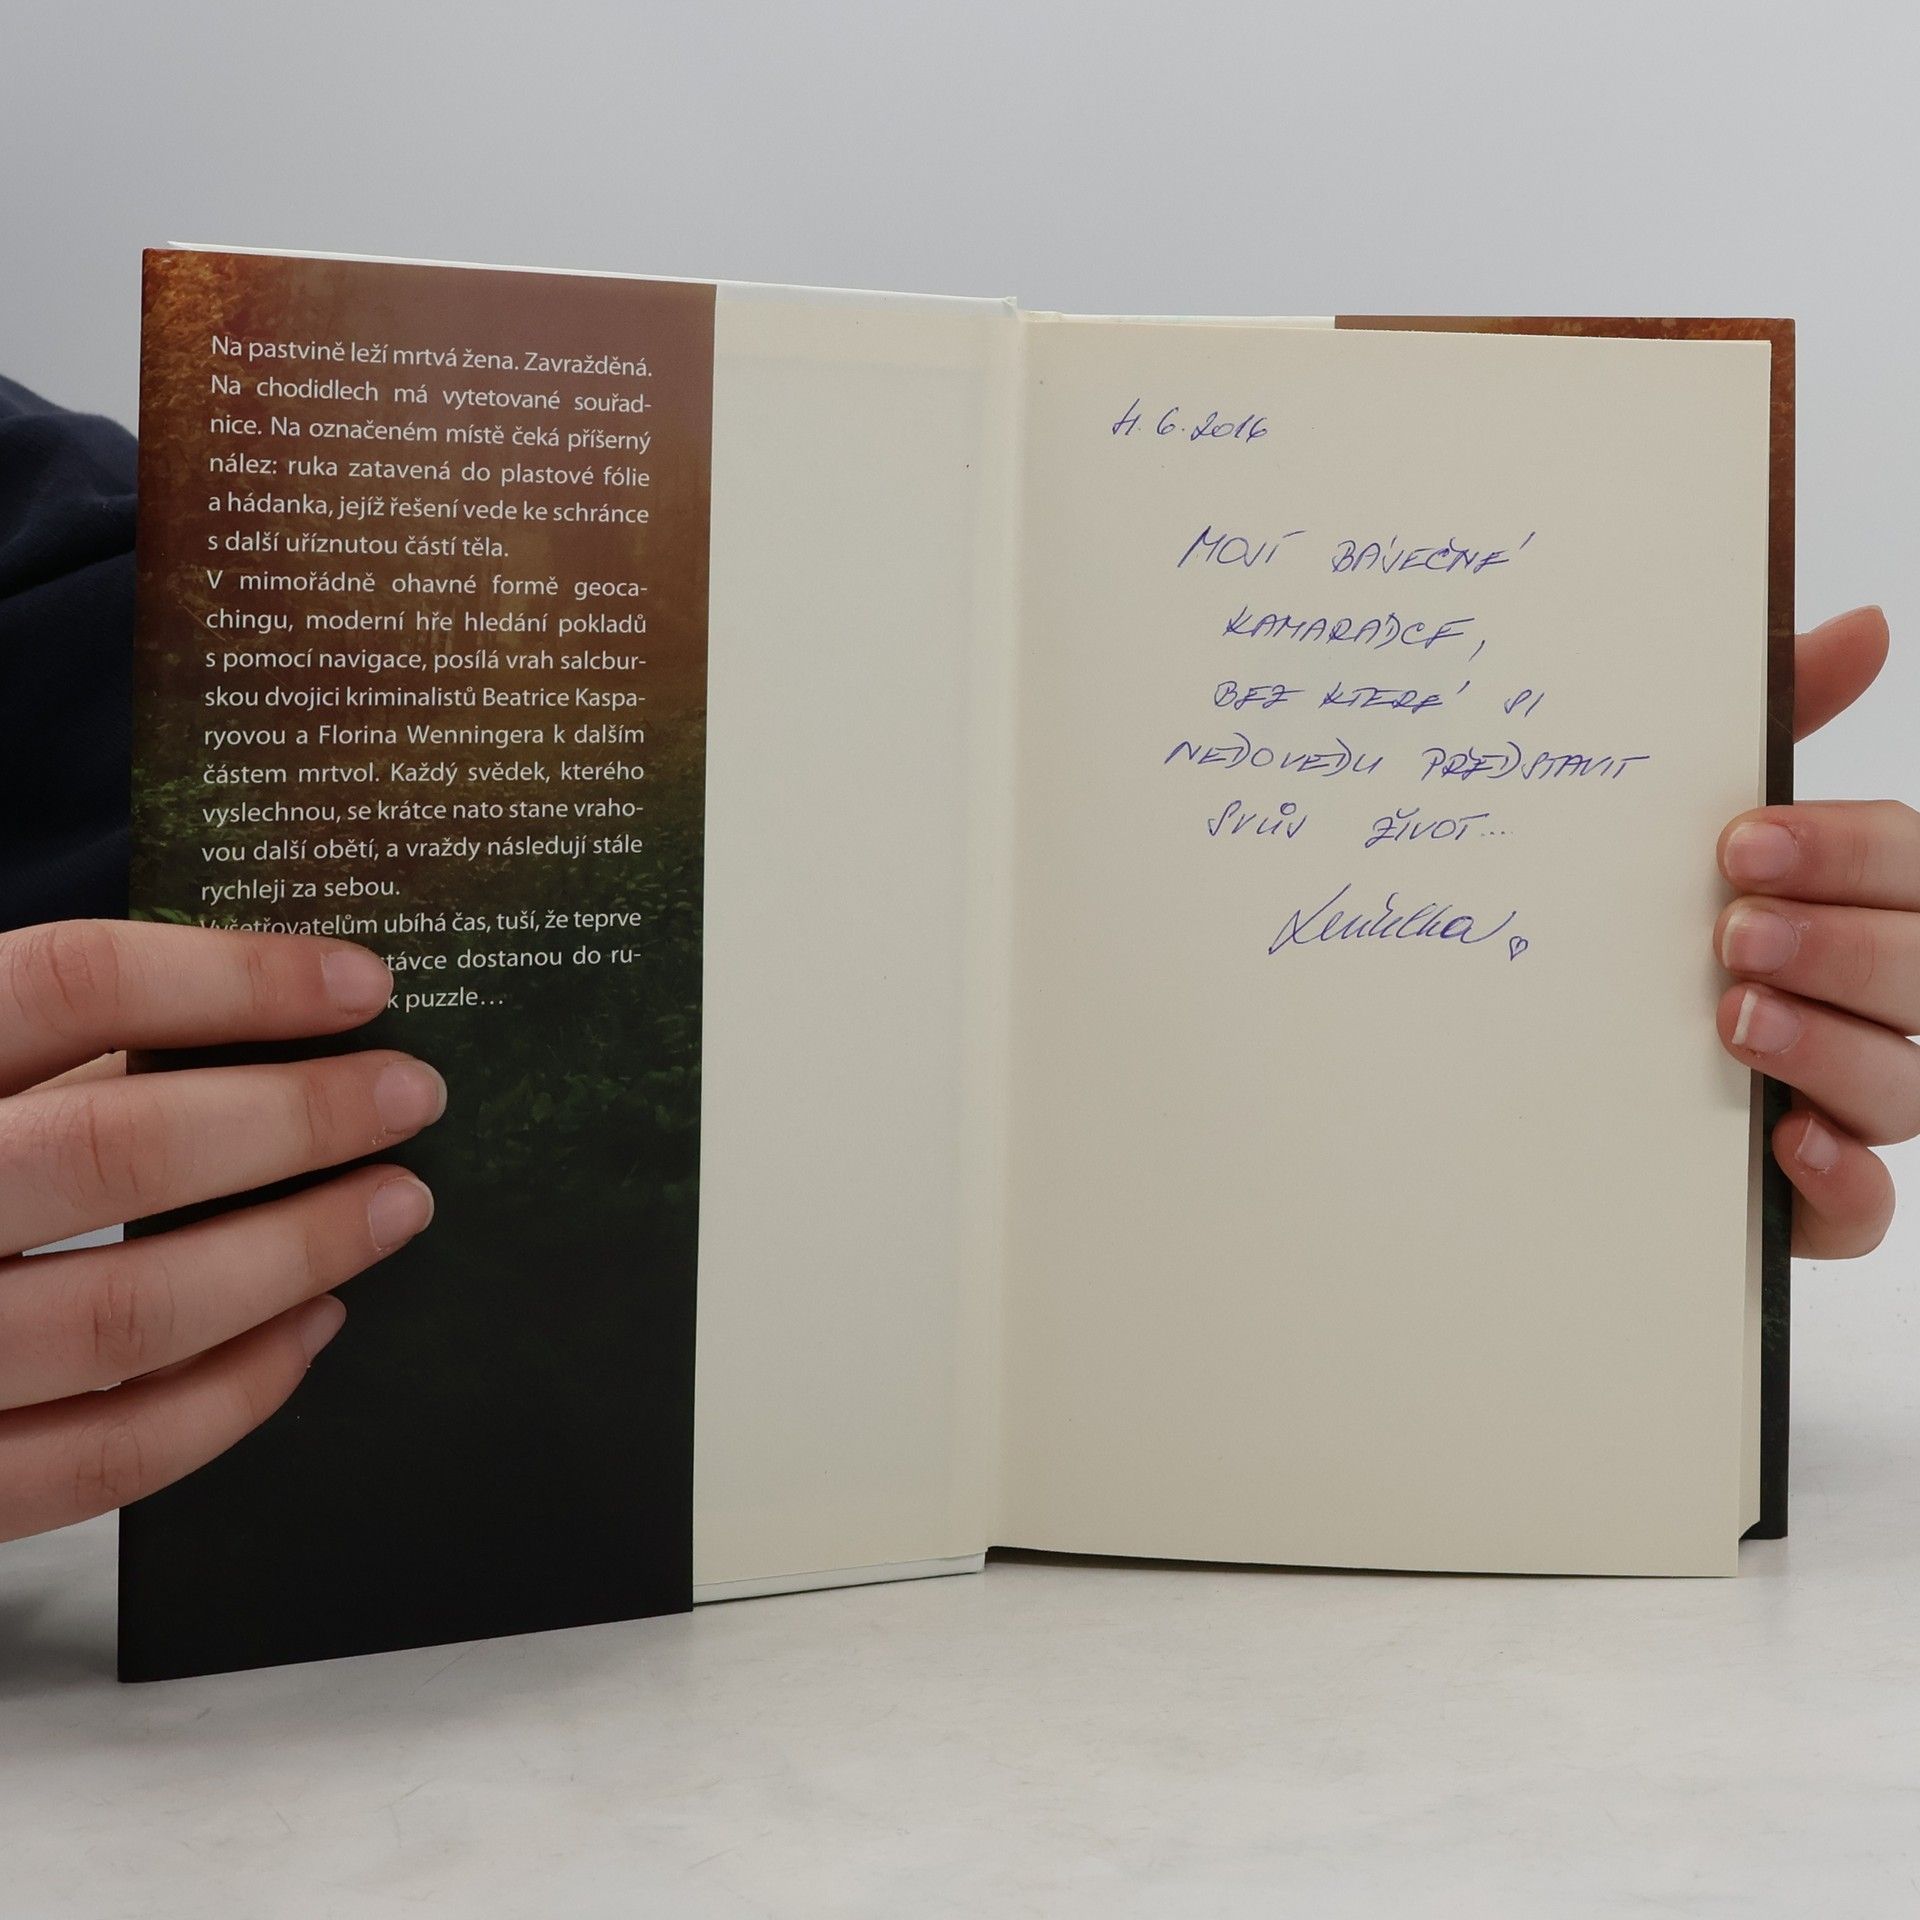 Na pastvině leží mrtvá žena. Zavražděná.
Na chodidlech má vytetované souřad-
nice. Na označeném místě čeká příšerný
nález: ruka zatavená do plastové fólie
a hádanka, jejíž řešení vede ke schránce
s další uříznutou částí těla.
V mimořádně ohavné formě geoca-
chingu, moderní hře hledání pokladů
s pomocí navigace, posílá vrah salcbur-
skou dvojici kriminalistů Beatrice Kaspa-
ryovou a Florina Wenningera k dalším
částem mrtvol. Každý svědek, kterého
vyslechnou, se krátce nato stane vraho-
vou další obětí, a vraždy následují stále
rychleji za sebou.
Vyšetřovatelům ubíhá čas, tuší, že teprve
dostanou do ru-
puzzle…
4. 6. 2016
MOJÍ BÁJEČNÉ
KAMARÁDCE,
BEZ KTERÉ SI
NEDOVEDU PŘEDSTAVIT
SVŮJ ŽIVOT...